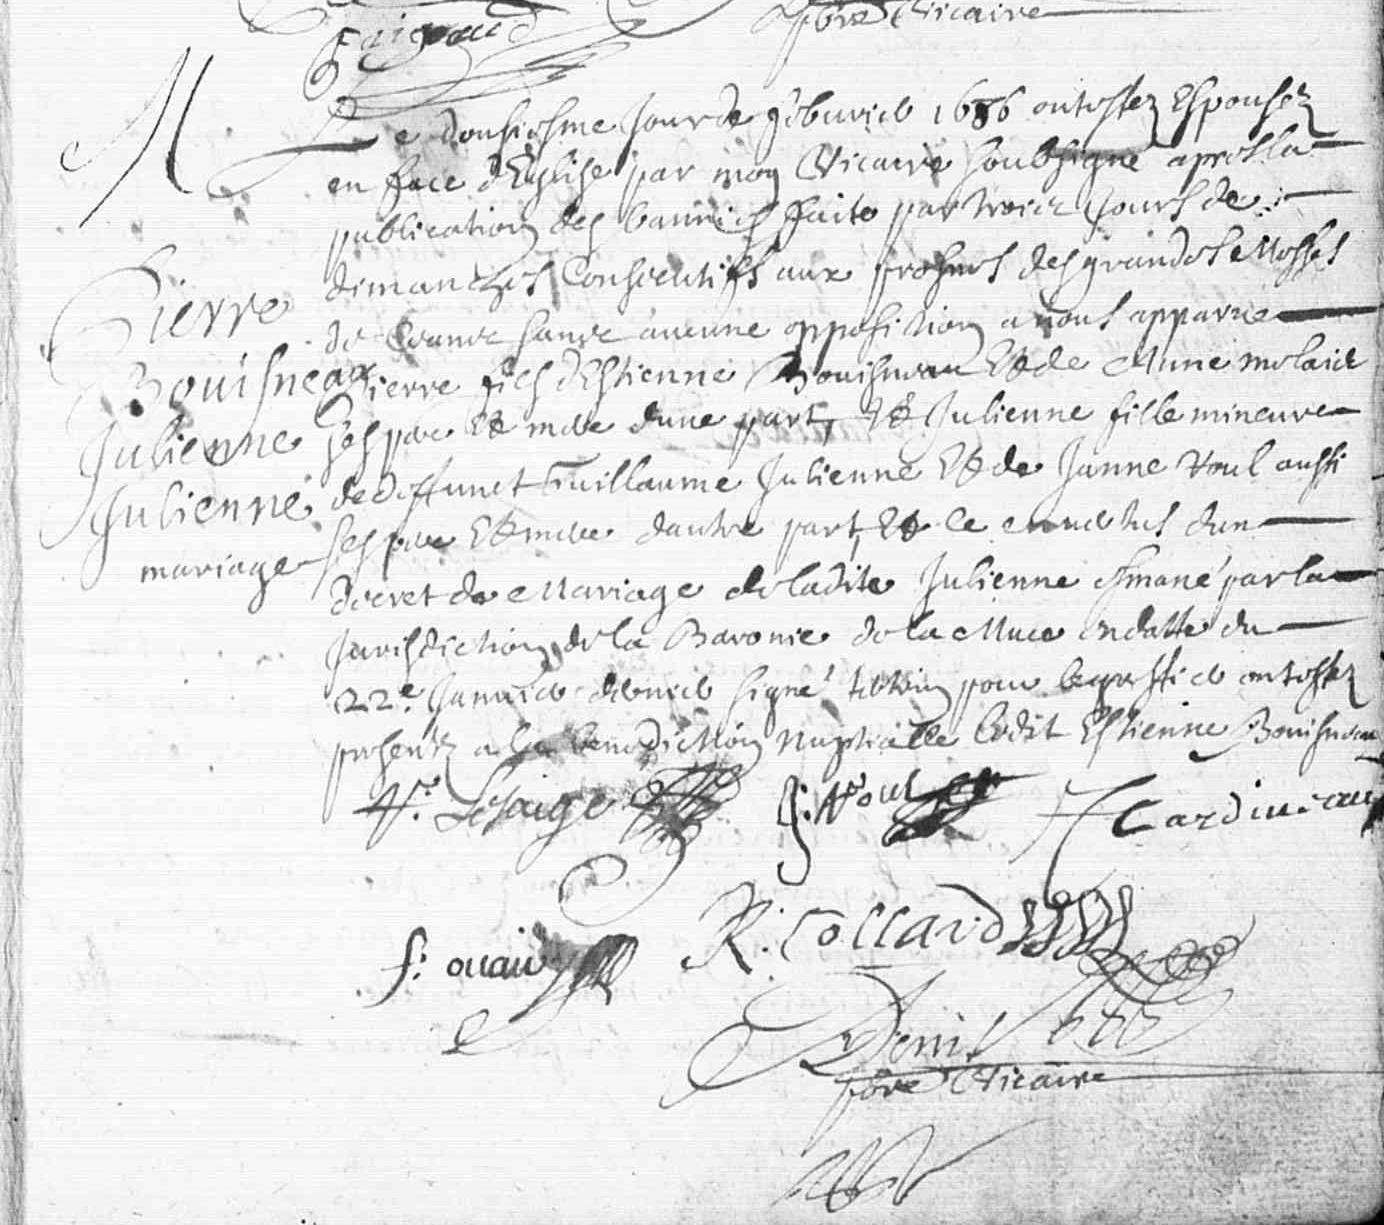 pbre Vicaire
M
Le dousiesme Jour de febvrier 1686 ont estez Espousez
en face d'Eglise par moy Vicaire soubsigné apres la
publication des bannies faite par trois jours de
dimanches Consecutifs aux prosnes des grandes Messes
de sans aucune opposition a nous apparue
Pierre Bouisneau
Pierre fils d'Estienne Bouisneau Et de Anne molaic
ses pere Et mere d'une part, Et Julienne fille mineure
Julienne Julienne
mariage
de deffunct Guillaume Julienne Et de Janne Roul aussi
ses pere Et mere dautre part, Et ce en vertus d'un
decret de Mariage de ladite Julienne Emané par la
Jurisdiction de la Baronie de la Muce en datte du
22e Janvier dernier signé pour le greffier ont estez
presentz a la benediction Nuptialle ledit Estienne Bouisneau
Lesaige
J: Roul
Cardineau
f: ouair
R: Collard
Denis
pbre Vicaire